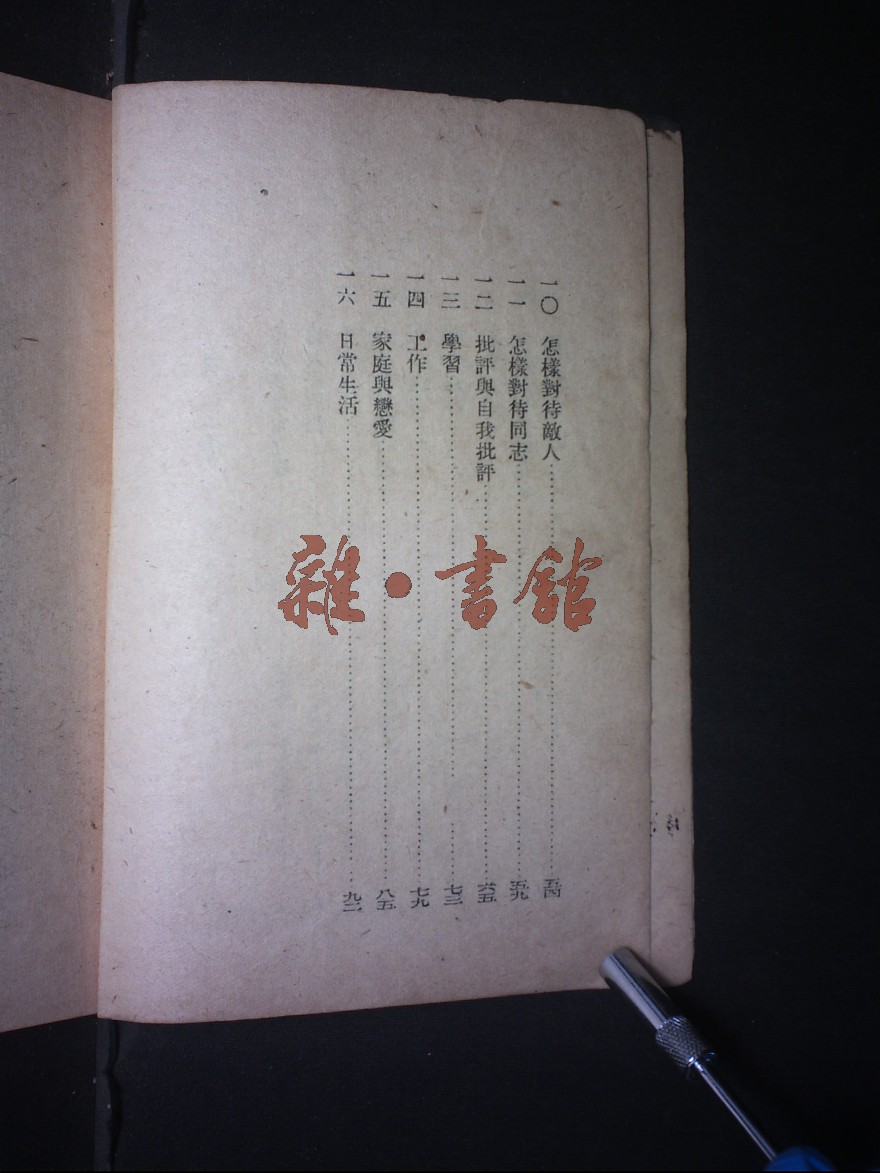 一〇 怎樣對待敵人 五四
一一 怎樣對待同志 五九
一二 批評與自我批評 六五
一三 學習 七三
一四 工作 七九
一五 家庭與戀愛 八五
一六 日常生活 九二
雜·書館